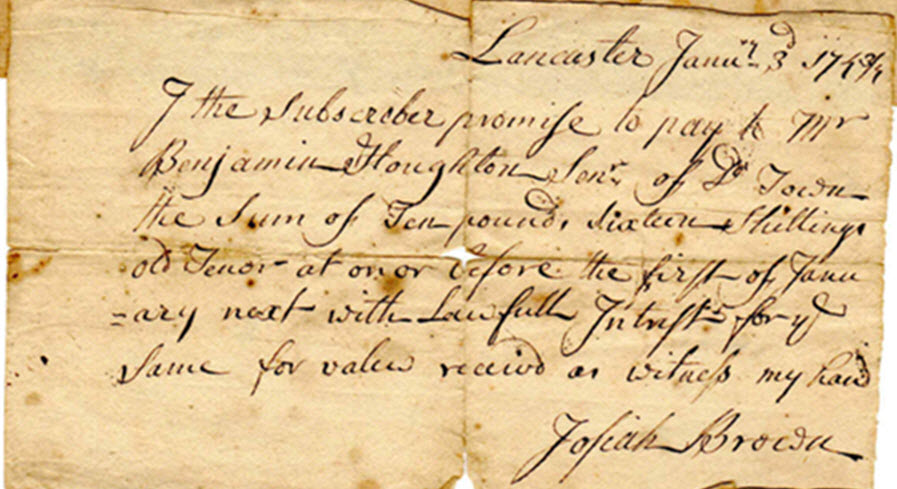 Lancaster Janury 3d 174¾
I the Subscrober promise to pay to Mr
Benjamin Houghton Senr of Sd Town
the Sum of Ten pounds sixteen Shillings
old Tenor at on or before the first of Janu
=ary next with Lawfull Intrest for ye
same for value receivd as witness my hand
Josiah Brown